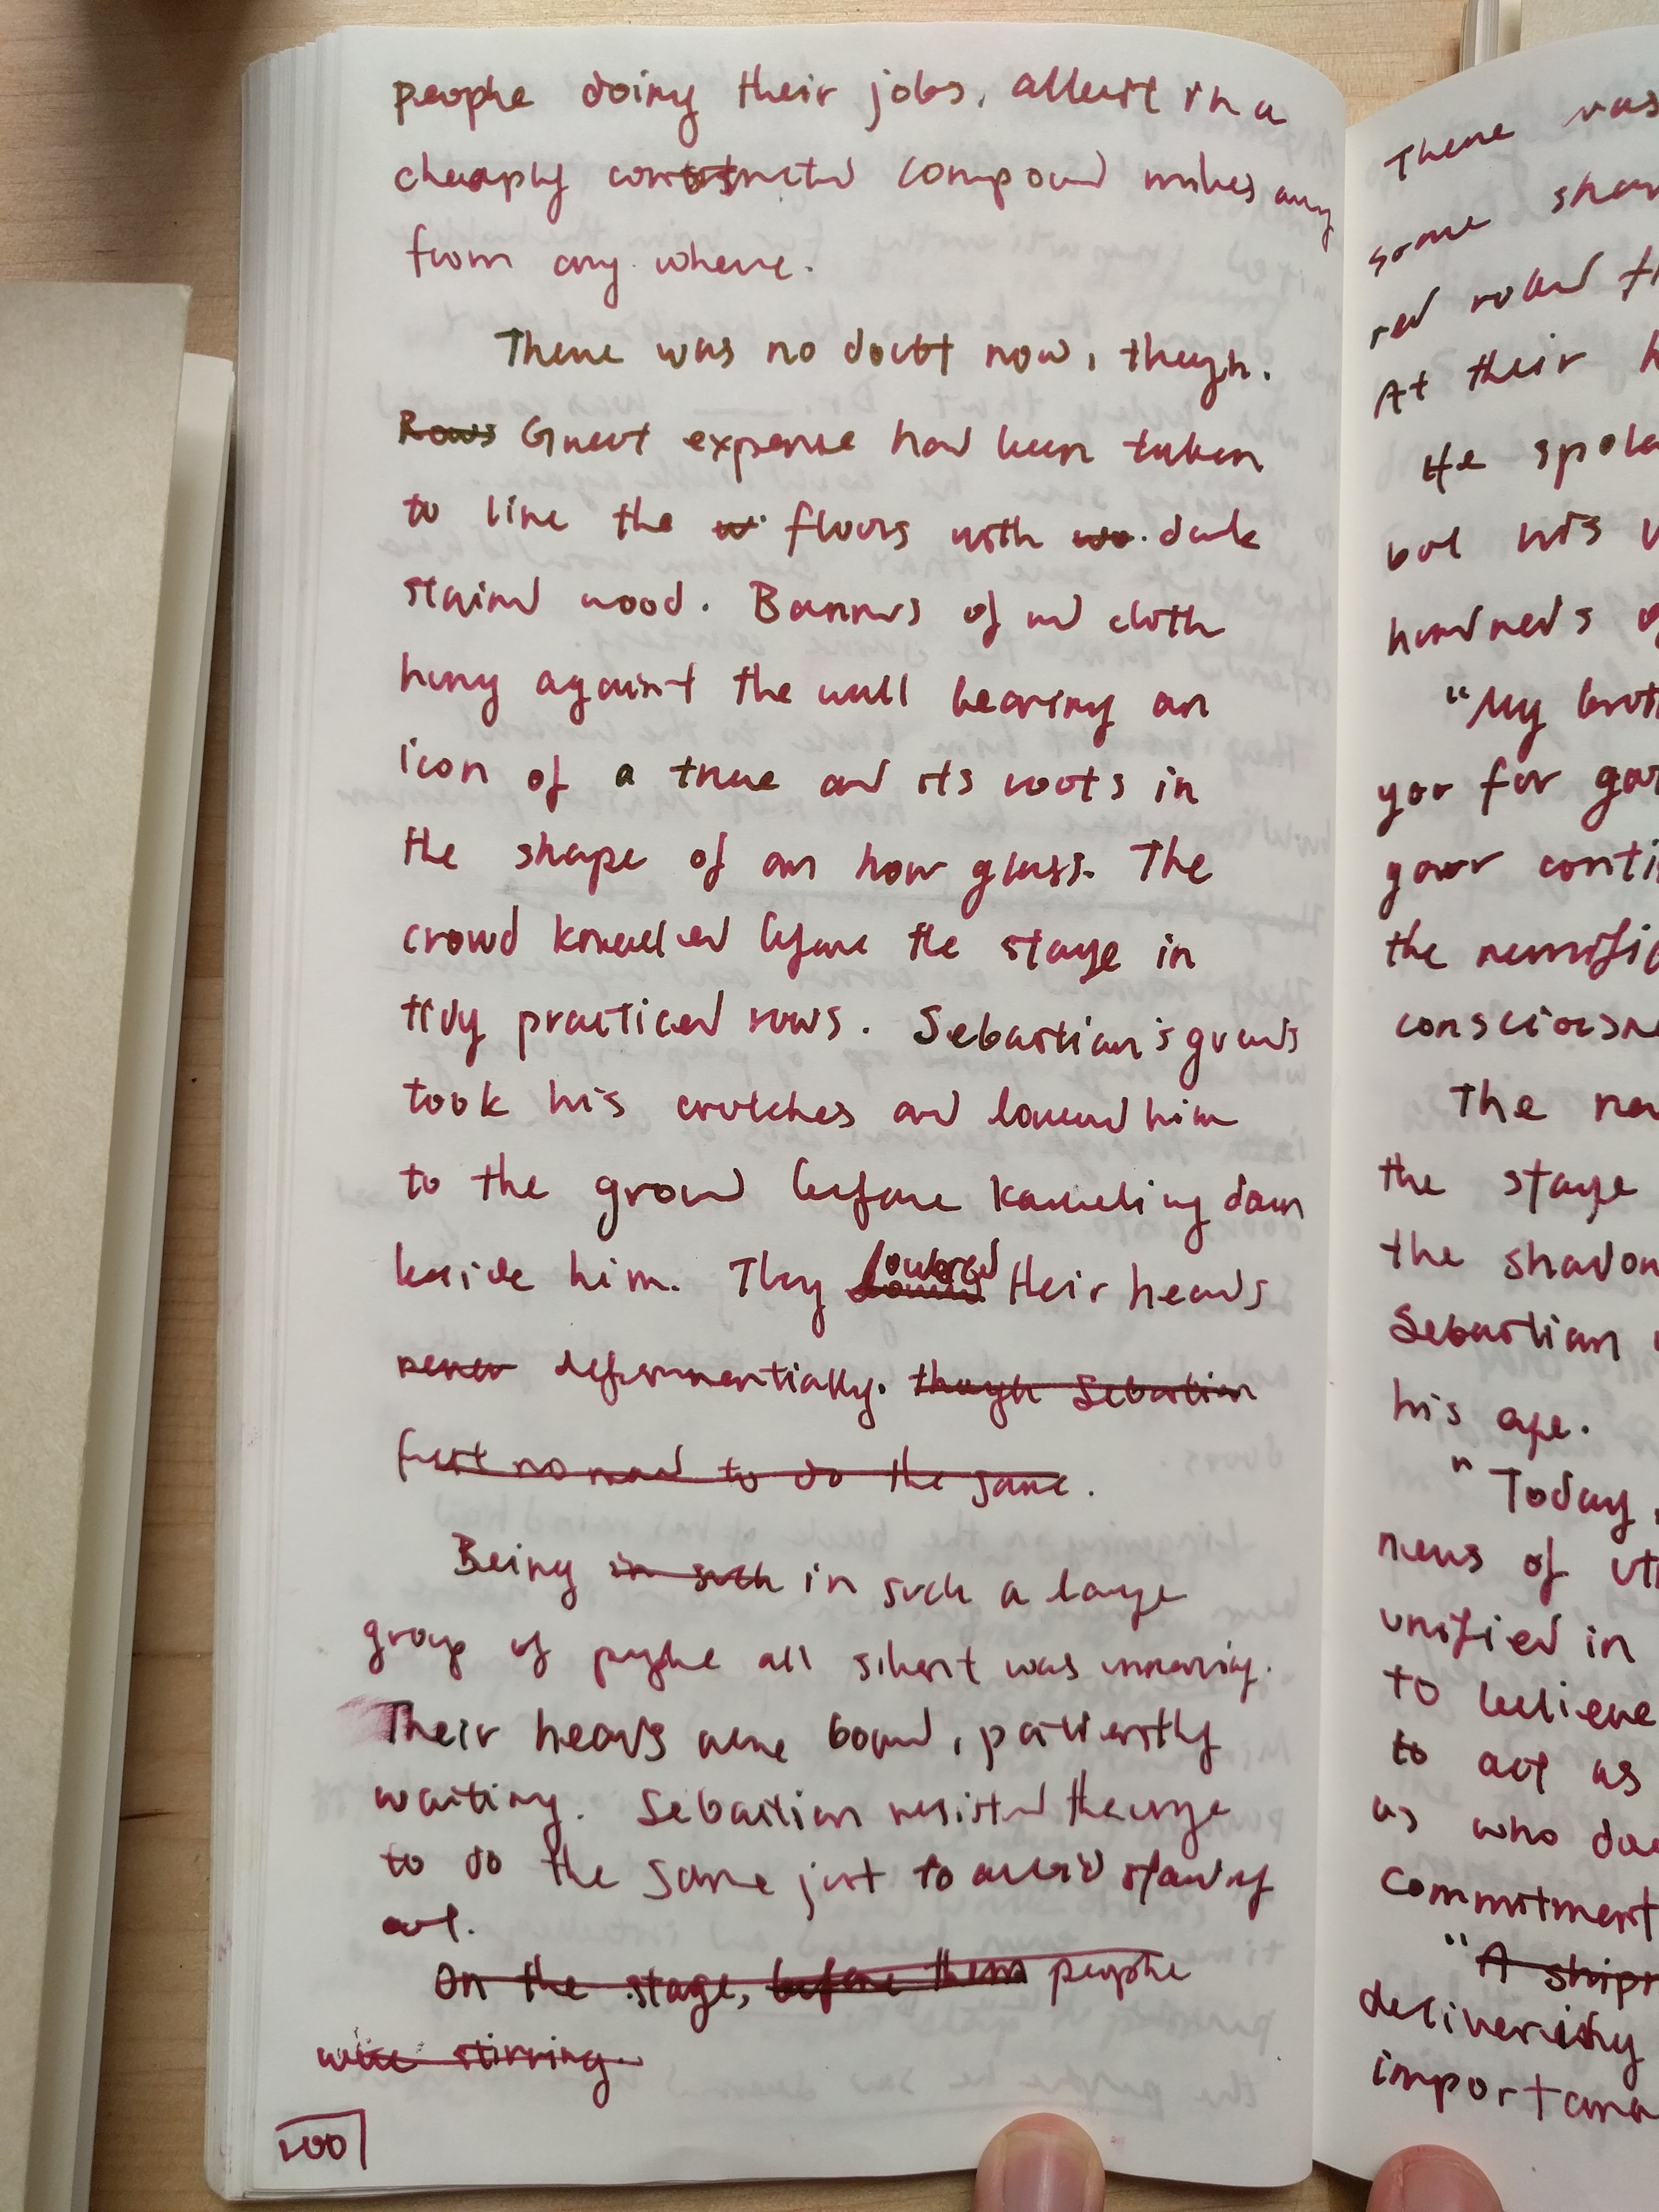 people doing their jobs, albeit in a
cheaply constructed compound miles away
from any where.
There was no doubt now, though.
Rows Great expense had been taken
to line the floors with wo dark
stained wood. Banners of red cloth
hung against the wall bearing an
icon of a tree and its roots in
the shape of an hour glass. The
crowd kneeled before the stage in
tidy practiced rows. Sebastian's guards
took his crutches and lowered him
to the ground before kneeling down
beside him. They lowered their heads
deferrentially. though Sebastian
felt no need to do the same.
Being in such in such a large
group of people all silent was unnerving.
Their heads were bowed, patiently
waiting. Sebastian resisted the urge
to do the same just to avoid standing
out.
On the stage, before them people
were stirring.
200
There was
some
red
At their
He
but his
hundreds
"My
you for
your
the
The
the stage
the
Sebastian
his age.
"Today,
news of
unified in
to believe
to act as
as who
commitment
"A